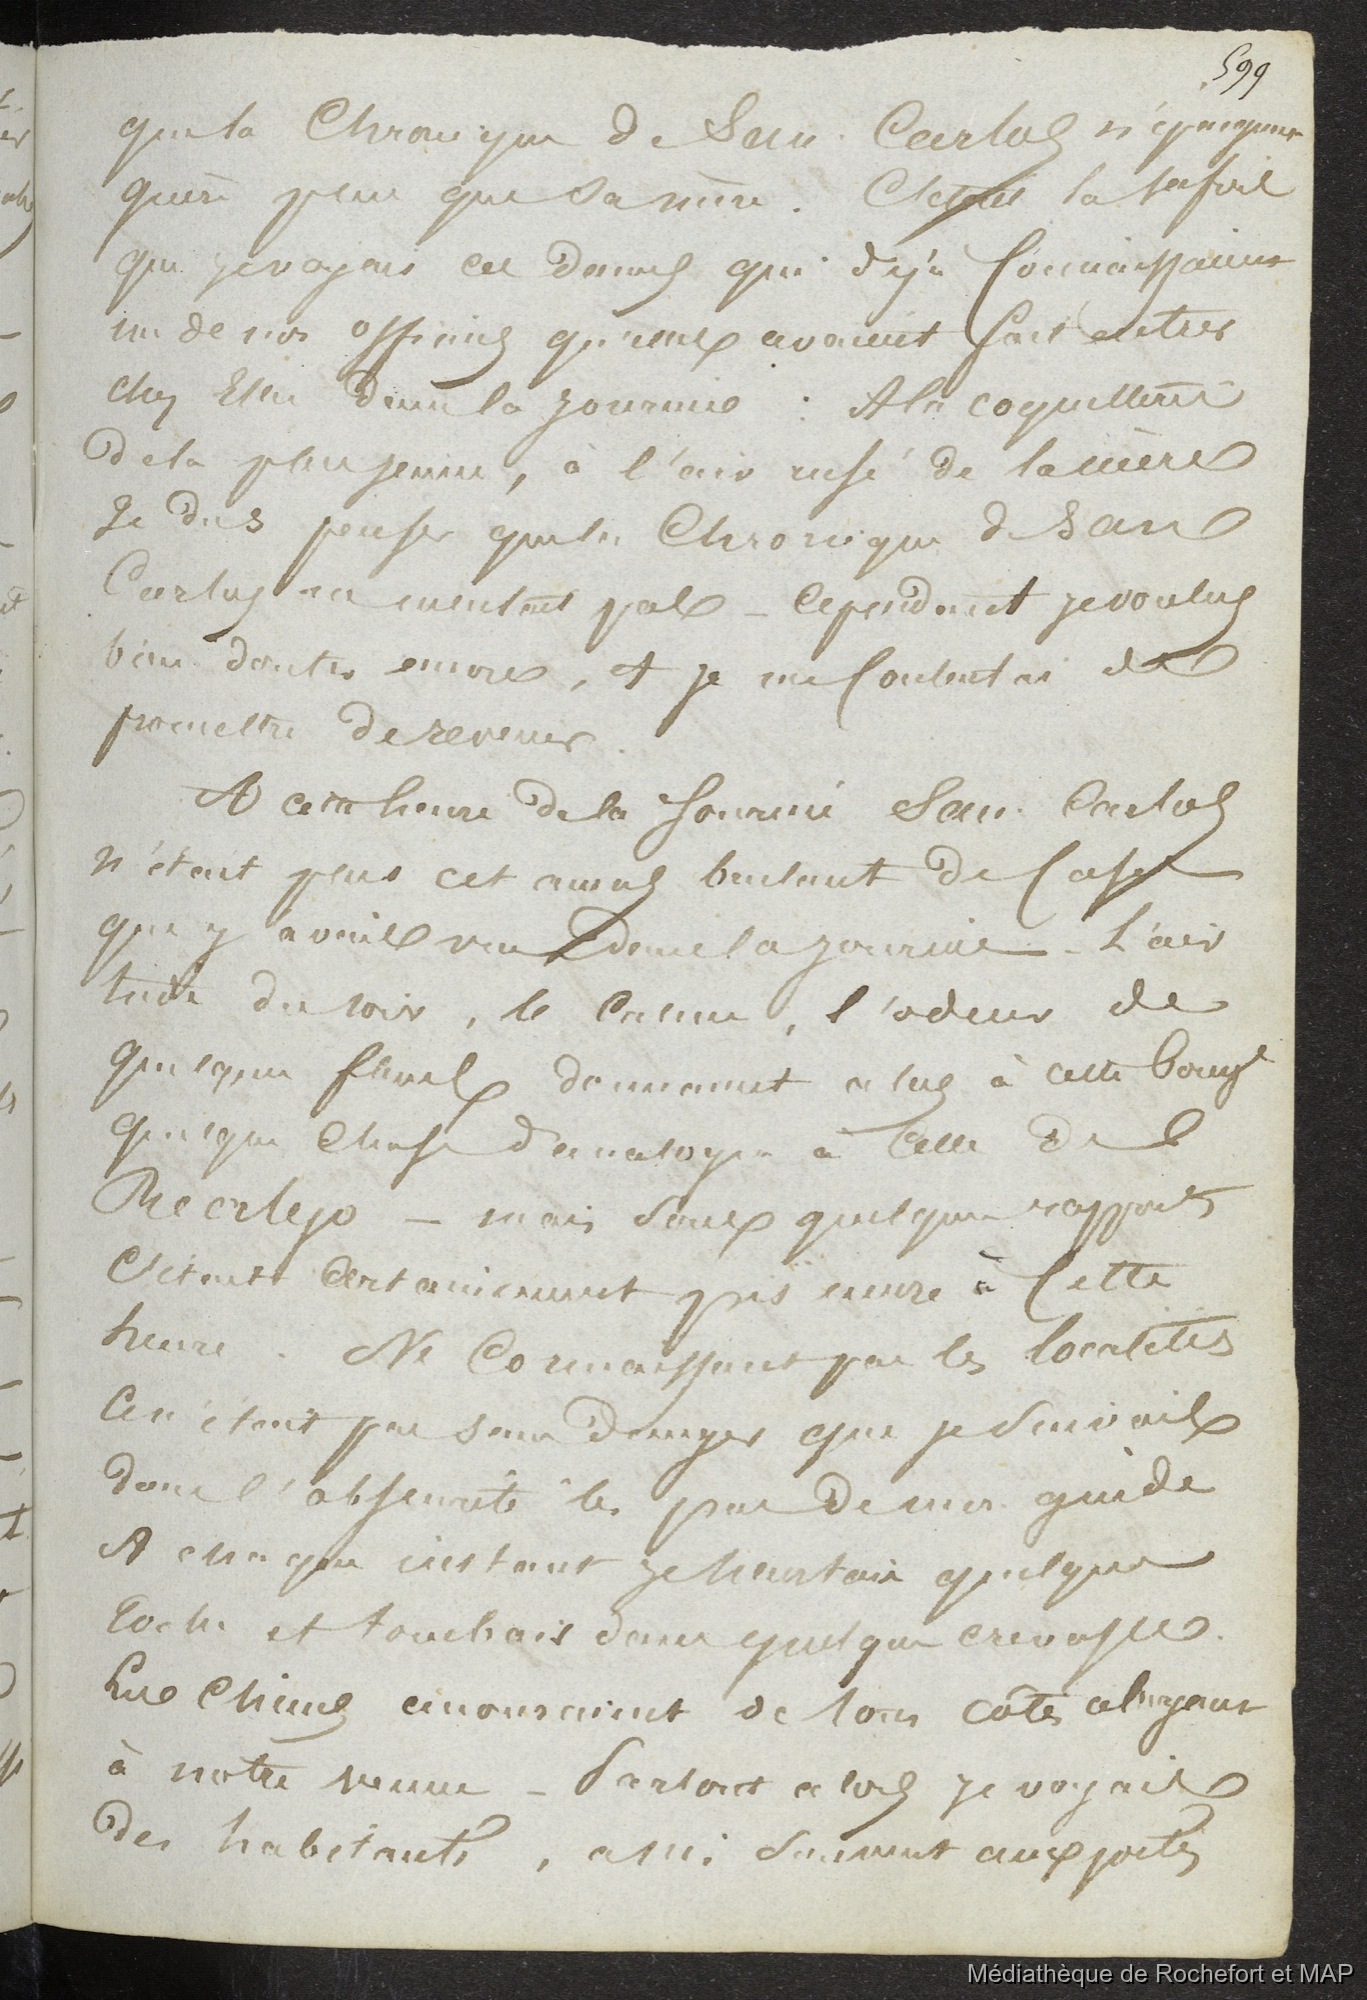 599
que la Chronique de San Carlos n'épargnait
guère plus que sa mère. C'était la 1ère fois
que je voyais ces dames qui déjà Connaissaient
un de nos officiers qu'elles avaient fait entrer
chez Elles dans la journée. A la coquetterie
de la plus jeune, à l'air rusé de la mère
Je dus penser que la Chronique de San
Carlos ne mentait pas – Cependant je voulus
bien douter encore, et je me Contentai de
promettre de revenir.
A cette heure de la Journée San Carlos
n'était plus cet amas brulant de Cases
que j'avais vu dans la journée – L'air
tiède du soir, le Calme, l'odeur de
quelques fleurs donnaient alors à cette bourgade
quelque Chose d'analogue à Celle de
Realejo – mais sous quelques rapports
C'était Certainement pis encore à Cette
heure. Ne Connaissant pas les localités
Ce n'était pas sans danger que je Suivais
dans l'obscurité les pas de mon guide
A chaque instant je heurtais quelque
roche et tombais dans quelque crevasse.
Les Chiens accouraient de tous côtés aboyant
à notre venue – Partout alors je voyais
des habitants, assis Souvent aux portes
Médiathèque de Rochefort et MAP